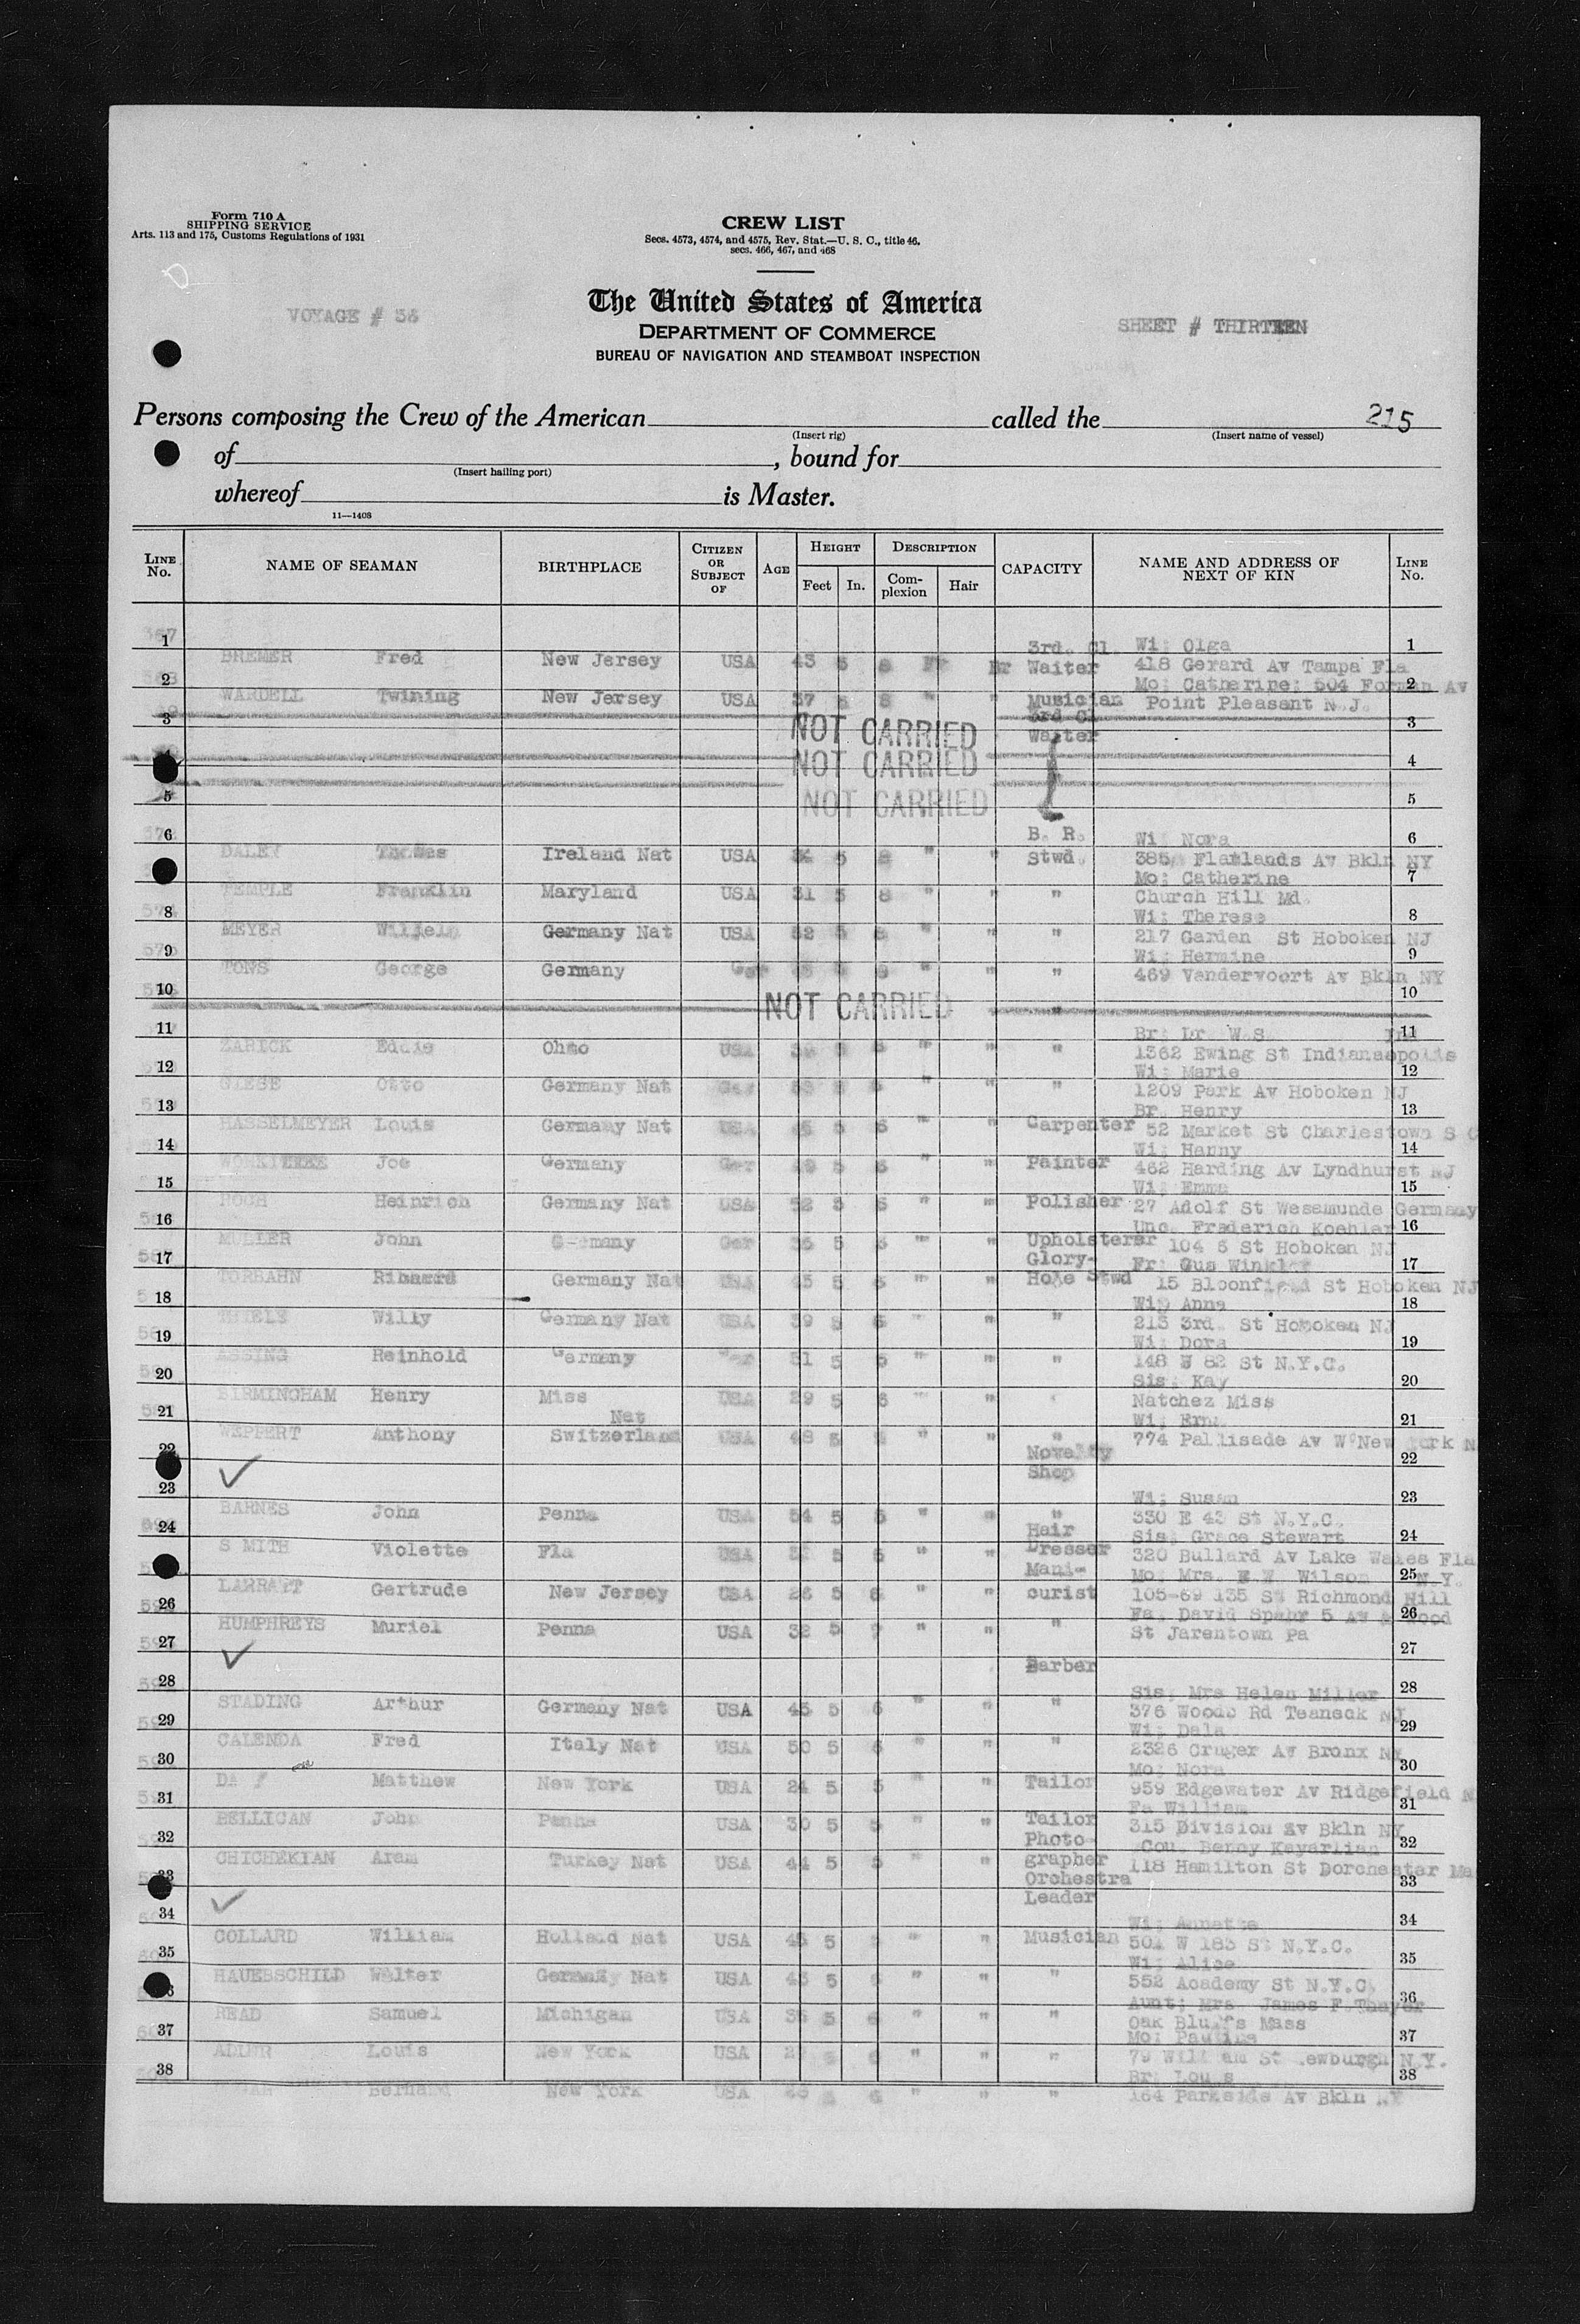 Form 710 A
SHIPPING SERVICE
Arts. 113 and 175, Customs Regulations of 1931
CREW LIST
Secs. 4573, 4574, and 4575, Rev. Stat.—U. S. C., title 46,
secs. 466, 467, and 468
The United States of America
DEPARTMENT OF COMMERCE
BUREAU OF NAVIGATION AND STEAMBOAT INSPECTION
VOYAGE #
SHEET # THIRTEEN
Persons composing the Crew of the American called the 215
(Insert rig) (Insert name of vessel)
of , bound for
(Insert hailing port)
whereof is Master.
11—1408
LINE No. NAME OF SEAMAN BIRTHPLACE CITIZEN OR SUBJECT OF AGE HEIGHT Feet In. DESCRIPTION Complexion Hair CAPACITY NAME AND ADDRESS OF NEXT OF KIN LINE No.
1 3rd. Cl. Wi; Olga 1
BREMER Fred New Jersey USA 43 5 8 Br Waiter 418 Gerard Av Tampa Fla
2 Mo; Catherine; 504 Forman Av 2
WARDELL Twining New Jersey USA 37 5 8 " " Musician Point Pleasant N.J.
3 NOT CARRIED 3rd Cl 3
Waiter
NOT CARRIED 4
5 NOT CARRIED 5
6 B. R. Wi; Nora 6
DALEY Thomas Ireland Nat USA 5 " " Stwd. Flatlands Av Bkln NY
Mo; Catherine 7
TEMPLE Franklin Maryland USA 31 5 8 " " " Church Hill Md.
8 Wi; Therese 8
MEYER Germany Nat USA 52 5 " " " 217 Garden St Hoboken NJ
9 Wi; Hermine 9
TONS George Germany Ger " " " 469 Vandervoort Av Bkln NY
10 NOT CARRIED " 10
11 Br; Dr W.S. 11
ZARICK Eddie Ohio USA 5 " " " 1362 Ewing St Indianapolis
12 Wi; Marie 12
GIESE Otto Germany Nat Ger 5 " " " 1209 Park Av Hoboken NJ
13 Br. Henry 13
HASSELMEYER Louis Germany Nat USA 45 5 6 " " Carpenter 52 Market St Charlestown S C
14 Wi; Hanny 14
Joe Germany Ger 49 5 6 " " Painter 462 Harding Av Lyndhurst NJ
15 Wi; Emma 15
HOCH Heinrich Germany Nat USA 52 5 6 " " Polisher 27 Adolf St Wesemunde Germany
16 Unc. Frederich Koehler 16
MULLER John Germany Ger 36 5 6 " " Upholsterer 104 6 St Hoboken NJ
17 Glory- Fr; Gus Winkler 17
TORBAHN Richard Germany Nat USA 45 5 6 " " Hole Stwd 15 Bloomfield St Hoboken NJ
18 Wi; Anna 18
THIELE Willy Germany Nat USA 39 5 6 " " " 213 3rd. St Hoboken NJ
19 Wi; Dora 19
ASSING Reinhold Germany Ger 51 5 6 " " " 148 W 82 St N.Y.C.
20 Sis; Kay 20
BIRMINGHAM Henry Miss USA 29 5 6 " " Natchez Miss
21 Nat Wi; Erna 21
WEPPERT Anthony Switzerland USA 48 5 " " " 774 Pallisade Av W New York N
22 Novelty 22
23 Shop Wi; Susan 23
BARNES John Penna USA 54 5 6 " " " 330 E 43 St N.Y.C.
24 Hair Sis; Grace Stewart 24
SMITH Violette Fla USA 5 6 " " Dresser 320 Bullard Av Lake Wales Fla
Mani- Mo; Mrs. E.W. Wilson N.Y. 25
LARRATT Gertrude New Jersey USA 26 5 6 " " curist 105-69 135 St Richmond Hill
26 Fa. David Spahr 5 Av & Wood 26
HUMPHREYS Muriel Penna USA 32 5 " " " St Jarentown Pa
27 27
28 Barber Sis; Mrs Helen Miller 28
STADING Arthur Germany Nat USA 45 5 6 " " " 376 Woods Rd Teaneck NJ
29 Wi; Dala 29
CALENDA Fred Italy Nat USA 50 5 6 " " " 2326 Cruger Av Bronx NY
30 Mo; Nora 30
Matthew New York USA 24 5 5 " " Tailor 959 Edgewater Av Ridgefield N
31 Fa William 31
BELLICAN John Penna USA 30 5 5 " " Tailor 315 Division Av Bkln NY
32 Photo- Cou. Benny Kayarlian 32
CHICHEKIAN Aram Turkey Nat USA 44 5 5 " " grapher 118 Hamilton St Dorchester Ma
33 Orchestra 33
34 Leader Wi; Annette 34
COLLARD William Holland Nat USA 45 5 " " Musician 501 W 183 St N.Y.C.
35 Wi; Alice 35
HAUEBSCHILD Walter Germany Nat USA 43 5 " " " 552 Academy St N.Y.C.
Aunt; Mrs James F Thayer 36
READ Samuel Michigan USA 36 5 6 " " " Oak Bluffs Mass
37 Mo; Pauline 37
ADLER Louis New York USA 6 " " " 79 William St Newburgh N.Y.
38 Br; Louis 38
Bernard New York USA 6 " " " 164 Parkside Av Bkln NY